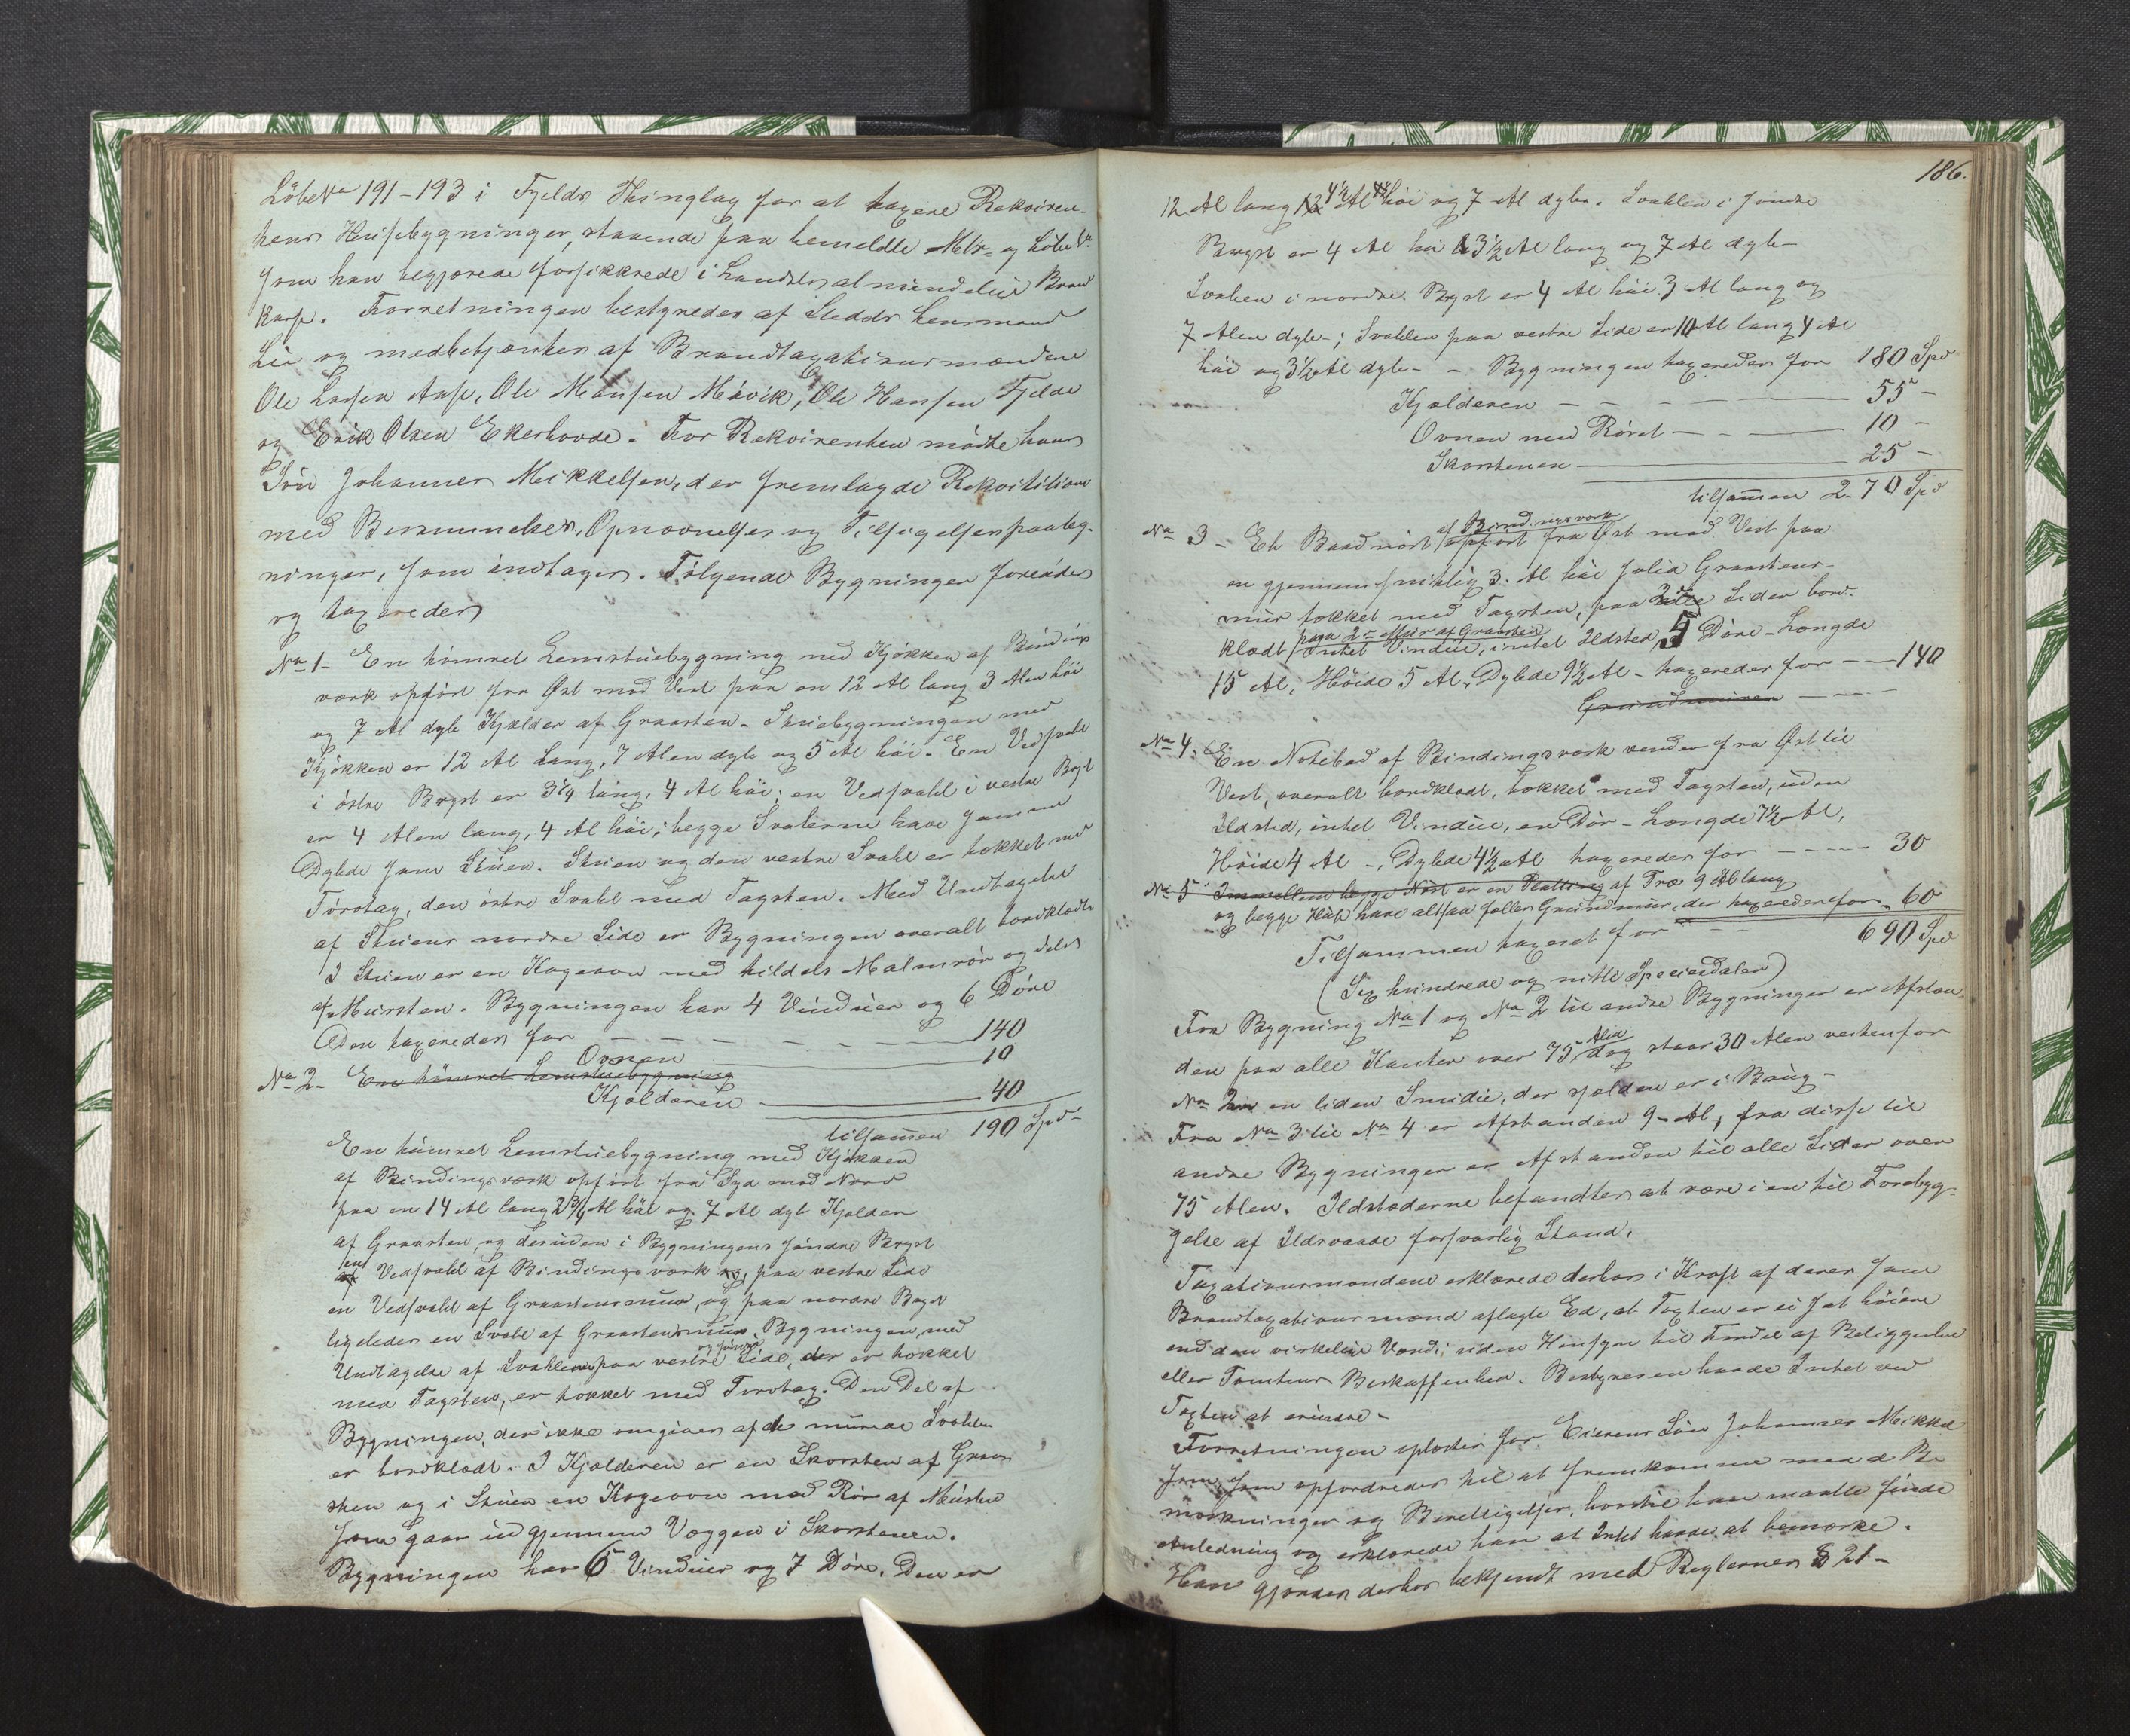 LöbeNo 191-193 i Fjelds Thinglag for at taxere Rekviren-
tens Husebygninger, staaende paa bemeldte Mtr- og LöbeNo
som han begjærede forsikkrede i Landets almindelige Brand
kasse. Forretningen bestyredes af Stedets Lensmand
Lie og medbetjentes af Brandtaxationsmændene
Ole Larsen Aase, Ole Monsen Misvik, Ole Hansen Fjelde
og Erik Olsen Ekerhovde. For Rekvirenten mödte hans
Sön Johannes Mikkelsen, der fremlagde Rekvisitionen
med Berammelses, Opnævnelses og Tilsigelsespaateg-
ninger, som indtages. Fölgende Bygninger forevistes
og taxeredes
No 1- En tömret Lemstuebygning med Kjökken af Bindings
værk opfört fra Öst mod Vest paa en 12 Al lang 3 Alen höi
og 7 Al dyb Kjælder af Graasten. Stuebygningen med
Kjökken er 12 Al Lang, 7 Alen dyb og 5 Al höi. En Vedsvahl
i östre Bryst er 3 1/4 lang, 4 Al höi; en Vedsvahl i vestre Bryst
er 4 Alen lang, 4 Al höi; begge Svalerne have samme
Dybde som Stuen. Stuen og den vestre Svahl er tækket med
Törvtag, den östre Svahl med Tagsten. Med Undtagelse
af Stuens nordre Side er Bygningen overalt bordklædt.
I Stuen er en Kogeovn med tildels Malmrör og dels
af Mursten. Bygningen har 4 Vinduer og 6 Döre
Den taxeredes for — — — — — 140
Ovnen — 10
No 2- En tömret Lemstuebygning
Kjælderen — 40
tilsammen 190 Spd-
En tömret Lemstuebygning med Kjökken
af Bindingsværk opfört fra Syd mod Nord
paa en 14 Al lang 2 3/4 Al höi og 7 Al dyb Kjælder
af Graasten, og desuden i Bygningens söndre Bryst
en Vedsvahl af Bindingsværk og paa vestre Side
en Vedsvahl af Graastensmuur, og paa nordre Bryst
ligeledes en Svahl af Graastensmuur. Bygningen, med
Undtagelse af Svahlene paa vestre og söndre Side, der er tækket
med Tagsten, er tækket med Törvtag. Den Del af
Bygningen, der ikke omgives af de murede Svahler
er bordklædt. I Kjælderen er en Skorsten af Graa-
sten og i Stuen en Kogeovn med Rör af Mursten
som gaar ud gjennem Væggen i Skorstenen.
Bygningen har 6 Vinduer og 7 Döre. Den er
186.
12 Al lang 4 1/2 Al höi og 7 Al dyb. Svahlen i söndre
Bryst er 4 Al höi 3 1/2 Al lang og 7 Al dyb-
Svalen i nordre Bryst er 4 Al höi 3 Al lang og
7 Alen dyb-; Svahlen paa vestre Side er 10 Al lang 4 Al
höi og 3 1/2 Al dyb- - Bygningen taxeredes for 180 Spd
Kjælderen — — — — 55 -
Ovnen med Röret — — — 10 -
Skorstenen — 25 -
tilsammen 270 Spd
No 3- Et Baadnöst af Bindingsværk opfört fra Öst mod Vest paa
en gjennemsnitlig 3 Al höi solid Graastens-
mur tækket med Tagsten, paa 2 Sider bord-
klædt paa 2de Mur af Graasten intet Vindue, intet Ildsted, 5 Döre - Længde
15 Al, Höide 5 Al, Dybde 9 1/2 Al - taxeredes for — 140
Grundmuren — —
No 4. En Notebod af Bindingsværk vender fra Öst til
Vest, overalt bordklædt, tækket med Tagsten, uden
Ildsted, intet Vindue, en Dör - Længde 7 1/2 Al,
Höide 4 Al -, Dybde 4 1/2 Al taxeredes for — — 30
No 5 Immellem begge Nöst er en Platting af Træ 9 Al lang
og begge Huse have altsaa fælles Grundmur, der taxeredes for - 60
Tilsammen taxeret for — — 690 Spd
(Sex hundrede og nitti Speciesdaler)
Fra Bygning No 1 og No 2 til andre Bygninger er Afstan-
den paa alle Kanter over 75 Alen dog staar 30 Alen vestenfor
No 2 en liden Smidie, der sjelden er i Brug-
Fra No 3 til No 4 er Afstanden 9- Al, fra disse til
andre Bygninger er Afstanden til alle Sider over
75 Alen. Ildstederne befandtes at være i en til Forebyg-
gelse af Ildsvaade forsvarlig Stand.
Taxationsmændene erklærede derhos i Kraft af deres som
Brandtaxationsmænd aflagte Ed, at Taxten er ei sat höiere
end den virkelige Værdi, uden Hensyn til Fordel af Beliggenhed
eller Tomtens Beskaffenhed. Bestyreren havde Intet ved
Taxten at erindre-
Forretningen oplæstes for Eierens Sön Johannes Mikkel
sen som opfordredes til at fremkomme med de Be
mærkninger og Berettigelser, hvortil han maatte finde
Anledning og erklærede han at Intet havde at bemærke.
Han gjordes derhos bekjendt med Reglerne i § 21-